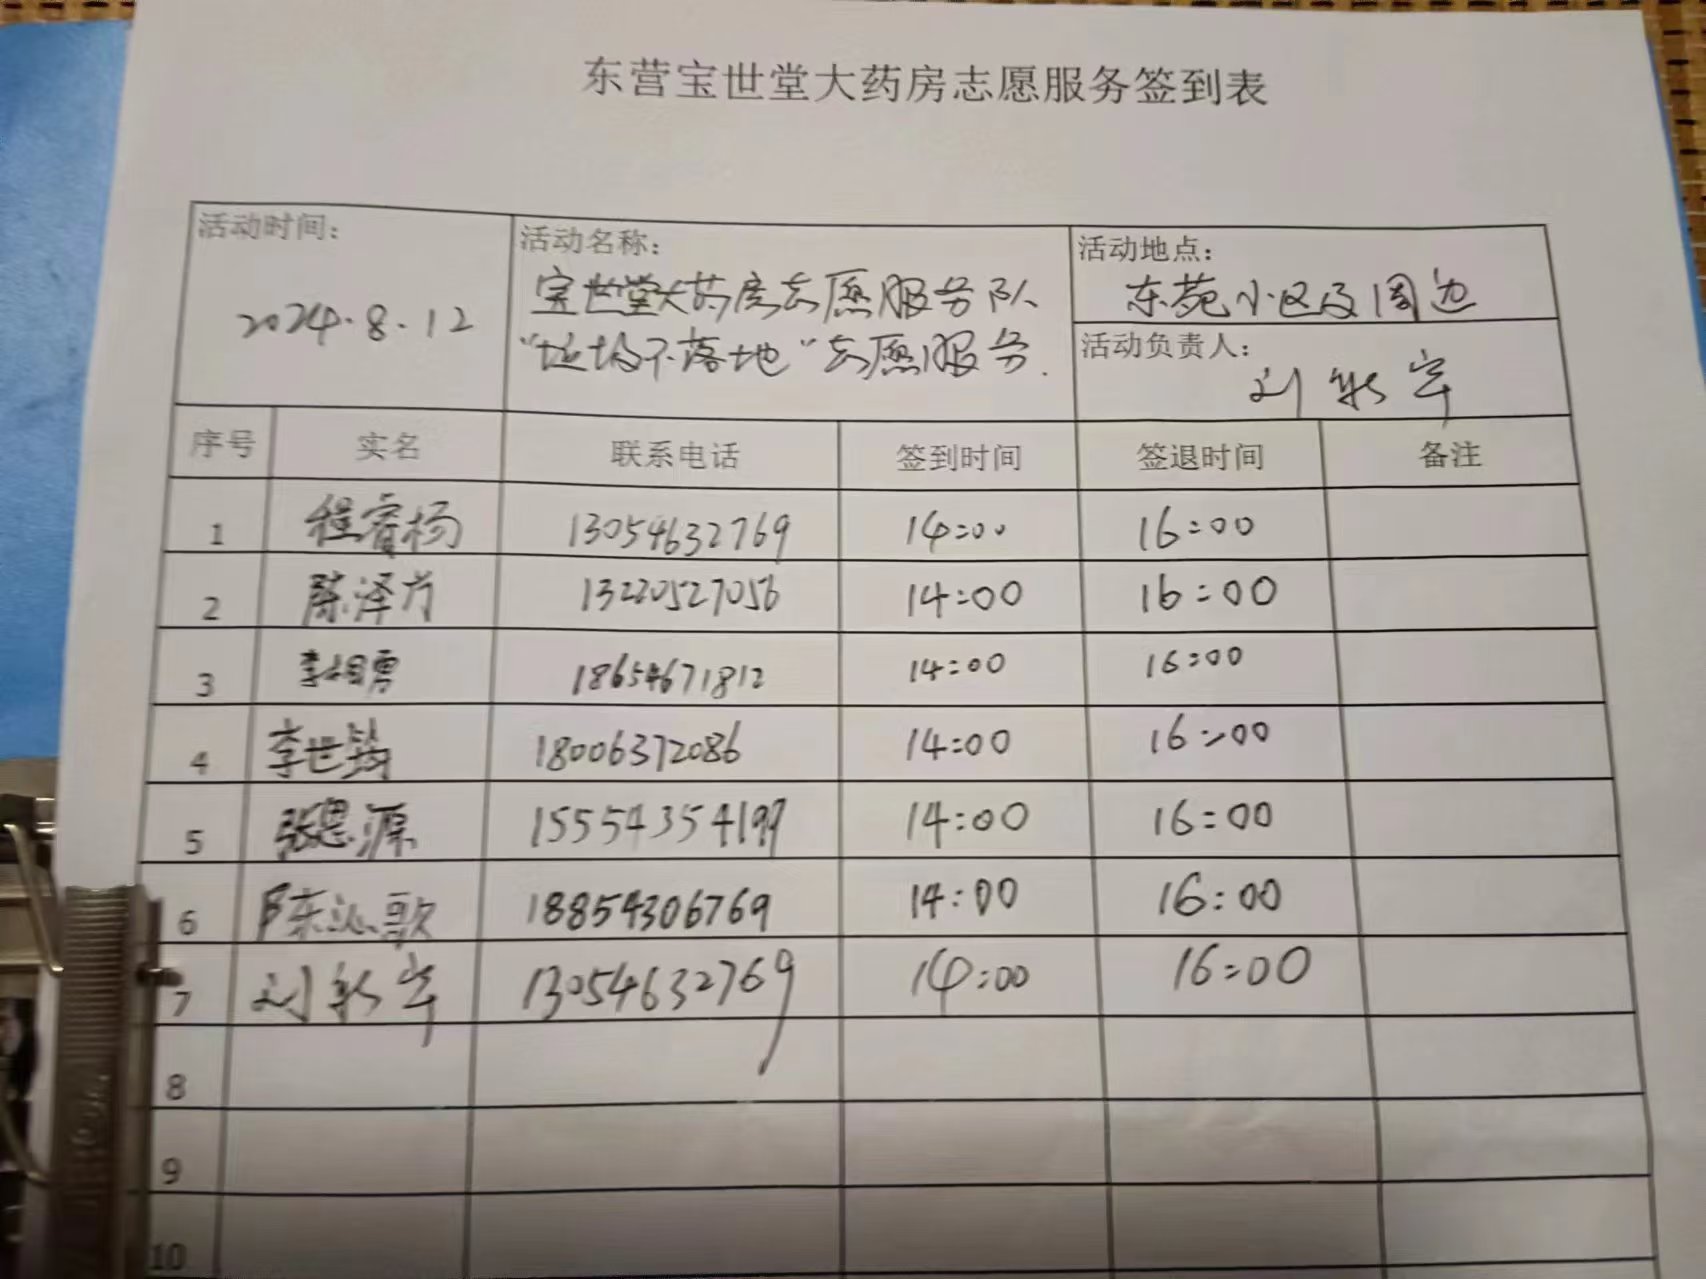 东营宝世堂大药房志愿服务签到表
活动时间: 活动名称: 活动地点:
2024.8.12 宝世堂大药房志愿服务队 东苑小区及周边
"垃圾不落地"志愿服务. 活动负责人:
刘 宇
序号 实名 联系电话 签到时间 签退时间 备注
1 程睿杨 13054632769 14:00 16:00
2 陈泽 13220527056 14:00 16:00
3 李相勇 18654671812 14:00 16:00
4 李世筠 18006372086 14:00 16:00
5 张思源 15554354199 14:00 16:00
6 陈沁歌 18854306769 14:00 16:00
7 刘 宇 13054632769 14:00 16:00
8
9
10